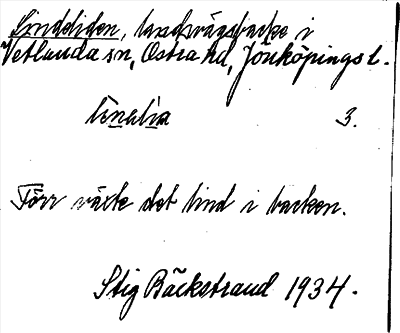 Linddiden, landsvägsbacke i
Vetlanda sn, Östra hd, Jönköpings l.
3.
Förr växte det lind i backen.
Stig Bäckstrand 1934.